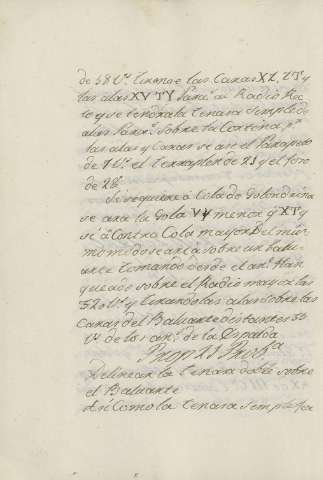 de 58 Vs. tirense las Caras XL, LT y
las alas XV TY Paral. al Radio Rec
to y que tendra la tenaza simple de
alas Paral. sobre la Cortina, pa.
las alas y Caras se ara el Parapeto
de 4 Vs. el terraplen de 23 y el foso
de 28.
Si se quiere a Cola de Golondrina
se ara la Gola VY menor q XT y
si a Contra Cola mayor Del mis
mo modo se ara sobre un balu
arte tomando desde el ang.
sobre el Radio mayor las
520 Vs. y tirando las alas sobre las
Caras del Baluarte distantes 30
Vs. de los ang. de la Espalda
Prop 23 Prob.a
Delinear la tenaza doble sobre
el Baluarte
Asi Como la tenaza simple sea